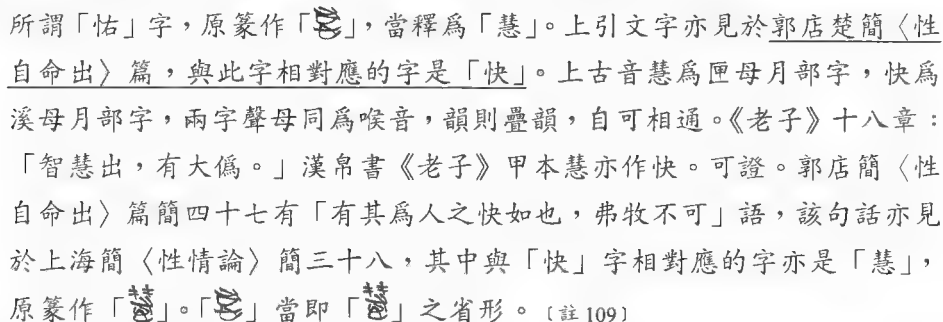 所謂「怘」字，原篆作「」，當釋爲「慧」。上引文字亦見於郭店楚簡〈性
自命出〉篇，與此字相對應的字是「快」。上古音慧爲匣母月部字，快爲
溪母月部字，兩字聲母同爲喉音，韻則疊韻，自可相通。《老子》十八章：
「智慧出，有大僞。」漢帛書《老子》甲本慧亦作快。可證。郭店簡〈性
自命出〉篇簡四十七有「有其爲人之快如也，弗牧不可」語，該句話亦見
於上海簡〈性情論〉簡三十八，其中與「快」字相對應的字亦是「慧」，
原篆作「」。「」當即「」之省形。〔註109〕